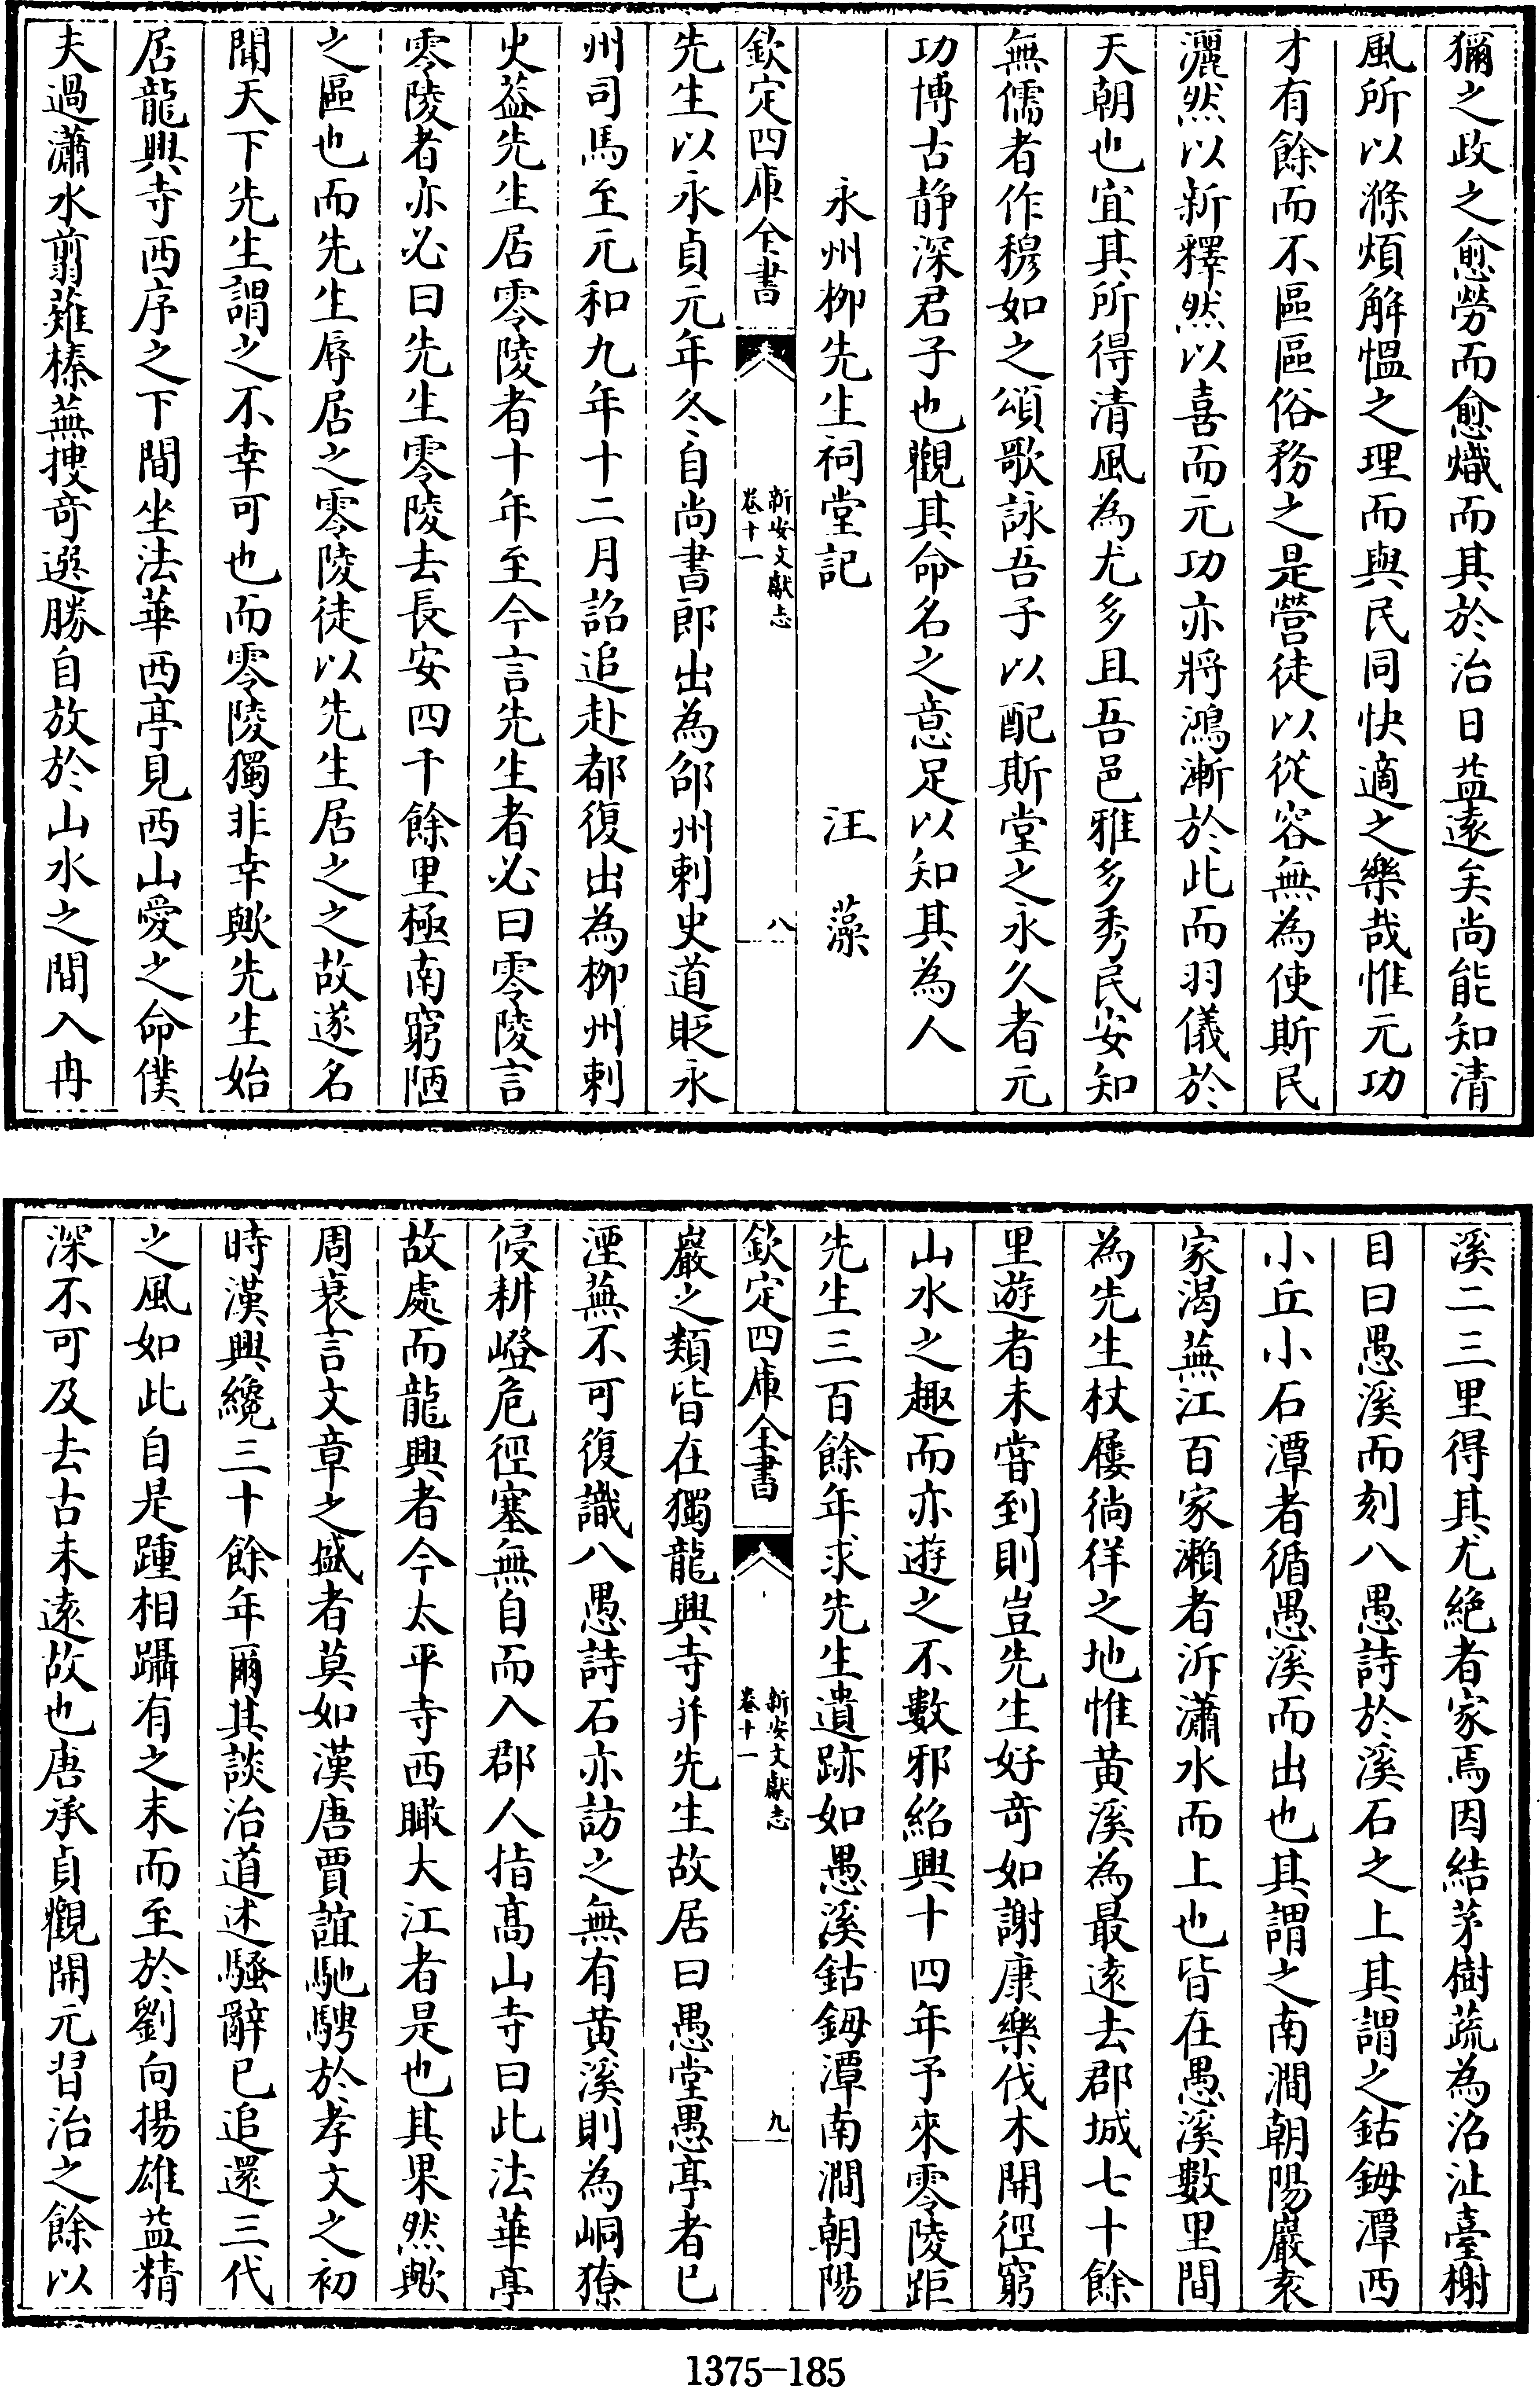 獮之政之愈勞而愈熾而其於治日益逺矣尚能知清
風所以滌煩解愠之理而與民同快適之樂哉惟元功
才有餘而不區區俗務之是營徒以從容無為使斯民
灑然以新釋然以喜而元功亦將鴻漸於此而羽儀於
天朝也宜其所得清風為尤多且吾邑雅多秀民安知
無儒者作穆如之頌歌詠吾子以配斯堂之永久者元
功博古静深君子也觀其命名之意足以知其為人
永州栁先生祠堂記 汪藻
欽定四庫全書 新安文獻志 卷十一 八
先生以永貞元年冬自尚書郎出為邵州刺史道貶永
州司馬至元和九年十二月詔追赴都復出為栁州刺
史葢先生居零陵者十年至今言先生者必曰零陵言
零陵者亦必曰先生零陵去長安四千餘里極南窮陋
之區也而先生辱居之零陵徒以先生居之之故遂名
聞天下先生謂之不幸可也而零陵獨非幸歟先生始
居龍興寺西序之下間坐法華西亭見西山愛之命僕
夫過瀟水翦薙榛蕪搜竒選勝自放於山水之間入冉
溪二三里得其尤絶者家焉因結茅樹蔬為沼沚臺榭
目曰愚溪而刻八愚詩於溪石之上其謂之鈷鉧潭西
小丘小石潭者循愚溪而出也其謂之南澗朝陽巖袁
家渴蕪江百家瀨者泝瀟水而上也皆在愚溪數里間
為先生杖屨徜徉之地惟黄溪為最逺去郡城七十餘
里遊者未嘗到則豈先生好竒如謝康樂伐木開徑窮
山水之趣而亦遊之不數邪紹興十四年予來零陵距
先生三百餘年求先生遺跡如愚溪鈷鉧潭南澗朝陽
欽定四庫全書 新安文獻志 卷十一 九
巖之類皆在獨龍興寺并先生故居曰愚堂愚亭者已
湮蕪不可復識八愚詩石亦訪之無有黄溪則為峒獠
侵耕嶝危徑塞無自而入郡人指髙山寺曰此法華亭
故處而龍興者今太平寺西瞰大江者是也其果然歟
周衰言文章之盛者莫如漢唐賈誼馳騁於孝文之初
時漢興纔三十餘年爾其談治道述騷辭已追還三代
之風如此自是踵相躡有之末而至於劉向揚雄益精
深不可及去古未逺故也唐承貞觀開元習治之餘以
1375-185